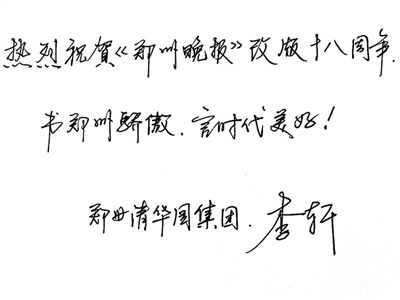 热烈祝贺《郑州晚报》改版十八周年.
书郑州骄傲.言时代美好!
郑州清华园集团.李轩